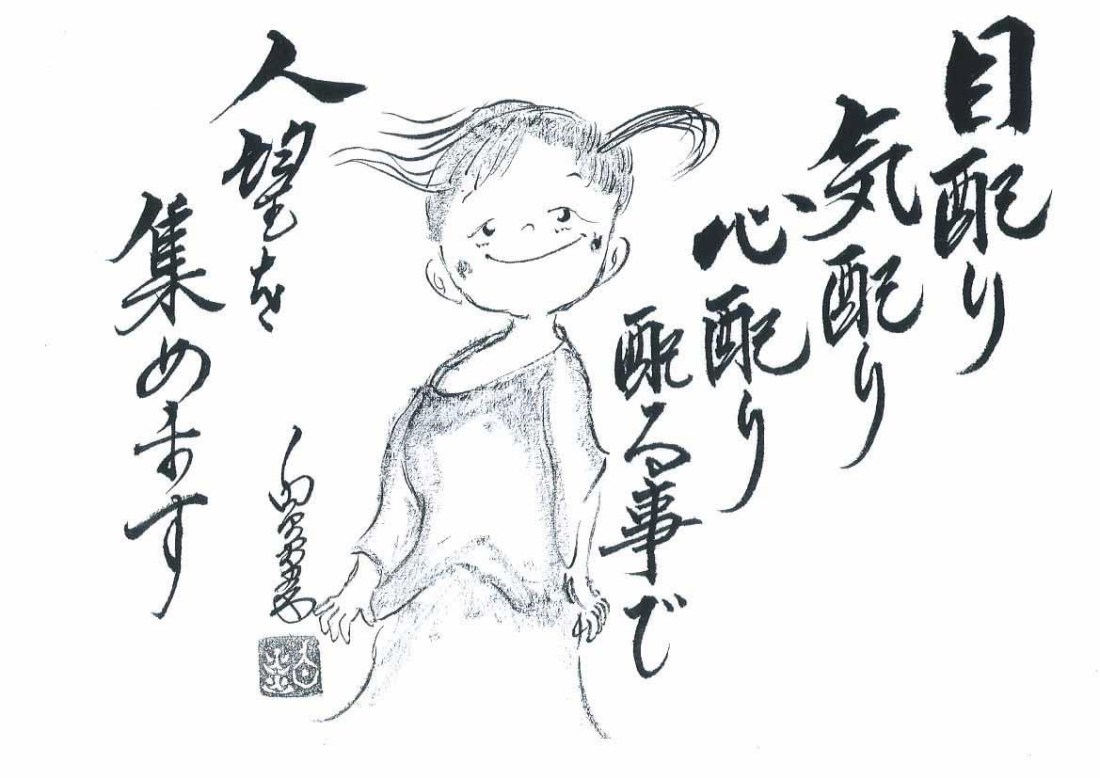 目配り
気配り
心配り
配る事で
人望を
集めます